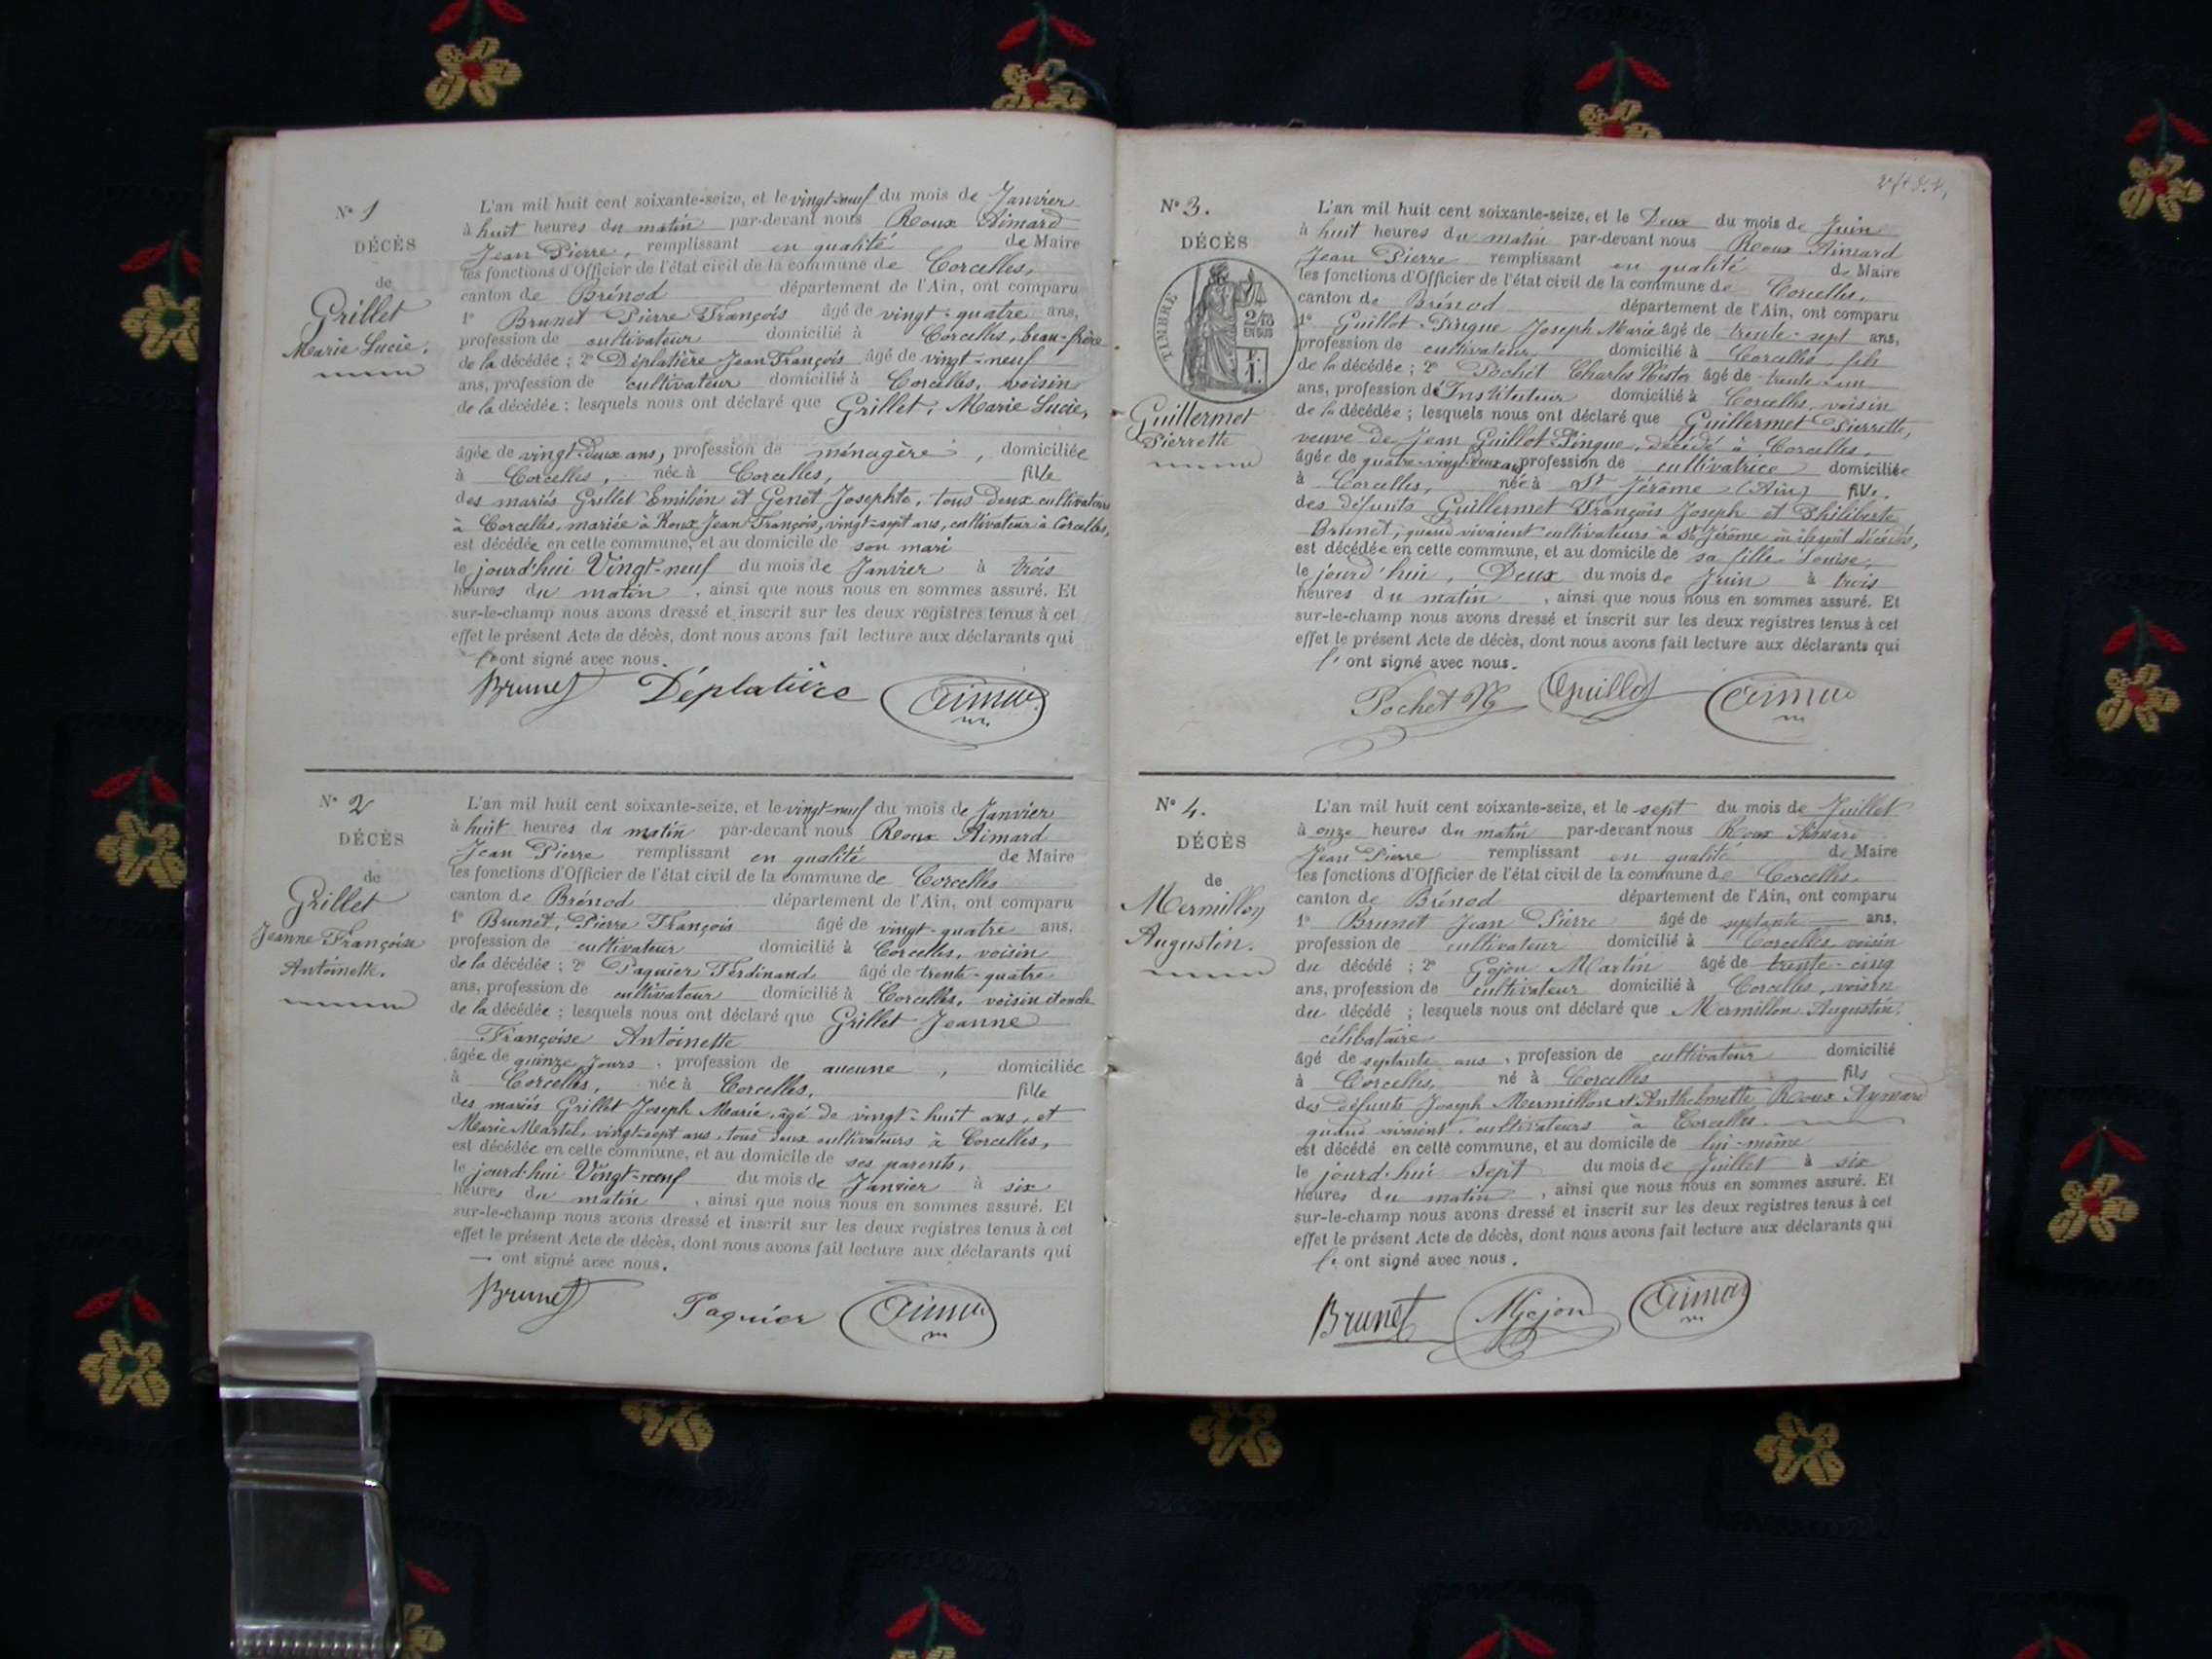 N° 1
DÉCÈS
de
Grillet
Marie Lucie.
L'an mil huit cent soixante-seize, et le vingt-neuf du mois de Janvier
à huit heures du matin par-devant nous Roux Aimard
Jean Pierre, remplissant en qualité de Maire
les fonctions d'Officier de l'état civil de la commune de Corcelles,
canton de Brénod département de l'Ain, ont comparu
1° Brunet Pierre François âgé de vingt-quatre ans,
profession de cultivateur domicilié à Corcelles, beau-frère
de la décédée ; 2° Déplatière Jean François âgé de vingt-neuf
ans, profession de cultivateur domicilié à Corcelles, voisin
de la décédée ; lesquels nous ont déclaré que Grillet, Marie Lucie,
âgée de vingt-deux ans, profession de ménagère, domiciliée
à Corcelles, née à Corcelles, fille
des mariés Grillet Emilien et Genet Josephte, tous deux cultivateurs
à Corcelles, mariée à Roux Jean François, vingt-sept ans, cultivateur à Corcelles,
est décédée en cette commune, et au domicile de son mari
le jourd'hui Vingt-neuf du mois de Janvier à trois
heures du matin, ainsi que nous nous en sommes assuré. Et
sur-le-champ nous avons dressé et inscrit sur les deux registres tenus à cet
effet le présent Acte de décès, dont nous avons fait lecture aux déclarants qui
l'ont signé avec nous.
Brunet Déplatière Aimar
N° 2
DÉCÈS
de
Grillet
Jeanne Françoise
Antoinette.
L'an mil huit cent soixante-seize, et le vingt-neuf du mois de Janvier
à huit heures du matin par-devant nous Roux Aimard
Jean Pierre remplissant en qualité de Maire
les fonctions d'Officier de l'état civil de la commune de Corcelles
canton de Brénod département de l'Ain, ont comparu
1° Brunet, Pierre François âgé de vingt-quatre ans,
profession de cultivateur domicilié à Corcelles, voisin
de la décédée ; 2° Paquier Ferdinand âgé de trente-quatre
ans, profession de cultivateur domicilié à Corcelles, voisin et oncle
de la décédée ; lesquels nous ont déclaré que Grillet Jeanne
Françoise Antoinette
âgée de quinze jours, profession de aucune, domiciliée
à Corcelles, née à Corcelles, fille
des mariés Grillet Joseph Marie, âgé de vingt-huit ans, et
Marie Martel, vingt-sept ans, tous deux cultivateurs à Corcelles,
est décédée en cette commune, et au domicile de ses parents,
le jourd'hui Vingt-neuf du mois de Janvier à six
heures du matin, ainsi que nous nous en sommes assuré. Et
sur-le-champ nous avons dressé et inscrit sur les deux registres tenus à cet
effet le présent Acte de décès, dont nous avons fait lecture aux déclarants qui
— ont signé avec nous.
Brunet Paquier Aimar
N° 3.
DÉCÈS
TIMBRE
2/10
EN SUS
Guillermet
Pierrette
L'an mil huit cent soixante-seize, et le Deux du mois de Juin
à huit heures du matin par-devant nous Roux Aimard
Jean Pierre remplissant en qualité de Maire
les fonctions d'Officier de l'état civil de la commune de Corcelles,
canton de Brénod département de l'Ain, ont comparu
1° Guillot-Pingue Joseph Marie âgé de trente-sept ans,
profession de cultivateur domicilié à Corcelles fils
de la décédée ; 2° Pochet Charles Nistor âgé de trente-un
ans, profession d'Instituteur domicilié à Corcelles, voisin
de la décédée ; lesquels nous ont déclaré que Guillermet Pierrette,
veuve de Jean Guillot-Pingue, décédé à Corcelles,
âgée de quatre-vingt-deux ans, profession de cultivatrice domiciliée
à Corcelles, née à St Jérôme (Ain) fille.
des défunts Guillermet François Joseph et Philiberte
Brunet, quand vivaient cultivateurs à St Jérôme où ils sont décédés,
est décédée en cette commune, et au domicile de sa fille Louise,
le jourd'hui, Deux du mois de Juin à trois
heures du matin, ainsi que nous nous en sommes assuré. Et
sur-le-champ nous avons dressé et inscrit sur les deux registres tenus à cet
effet le présent Acte de décès, dont nous avons fait lecture aux déclarants qui
l'ont signé avec nous.
Pochet N Guillot Aimar
N° 4.
DÉCÈS
de
Mermillon
Augustin.
L'an mil huit cent soixante-seize, et le sept du mois de Juillet
à onze heures du matin par-devant nous Roux Aimard
Jean Pierre remplissant en qualité de Maire
les fonctions d'Officier de l'état civil de la commune de Corcelles.
canton de Brénod département de l'Ain, ont comparu
1° Brunet Jean Pierre âgé de septante ans,
profession de cultivateur domicilié à Corcelles, voisin
du décédé ; 2° Gojon Martin âgé de trente-cinq
ans, profession de cultivateur domicilié à Corcelles, voisin
du décédé ; lesquels nous ont déclaré que Mermillon Augustin,
célibataire
âgé de septante ans, profession de cultivateur domicilié
à Corcelles, né à Corcelles fils
des défunts Joseph Mermillon et Anthelmette Roux Aymard
quand vivaient cultivateurs à Corcelles
est décédé en cette commune, et au domicile de lui-même
le jourd'hui Sept du mois de Juillet à six
heures du matin, ainsi que nous nous en sommes assuré. Et
sur-le-champ nous avons dressé et inscrit sur les deux registres tenus à cet
effet le présent Acte de décès, dont nous avons fait lecture aux déclarants qui
l'ont signé avec nous.
Brunet MGojon Aimar